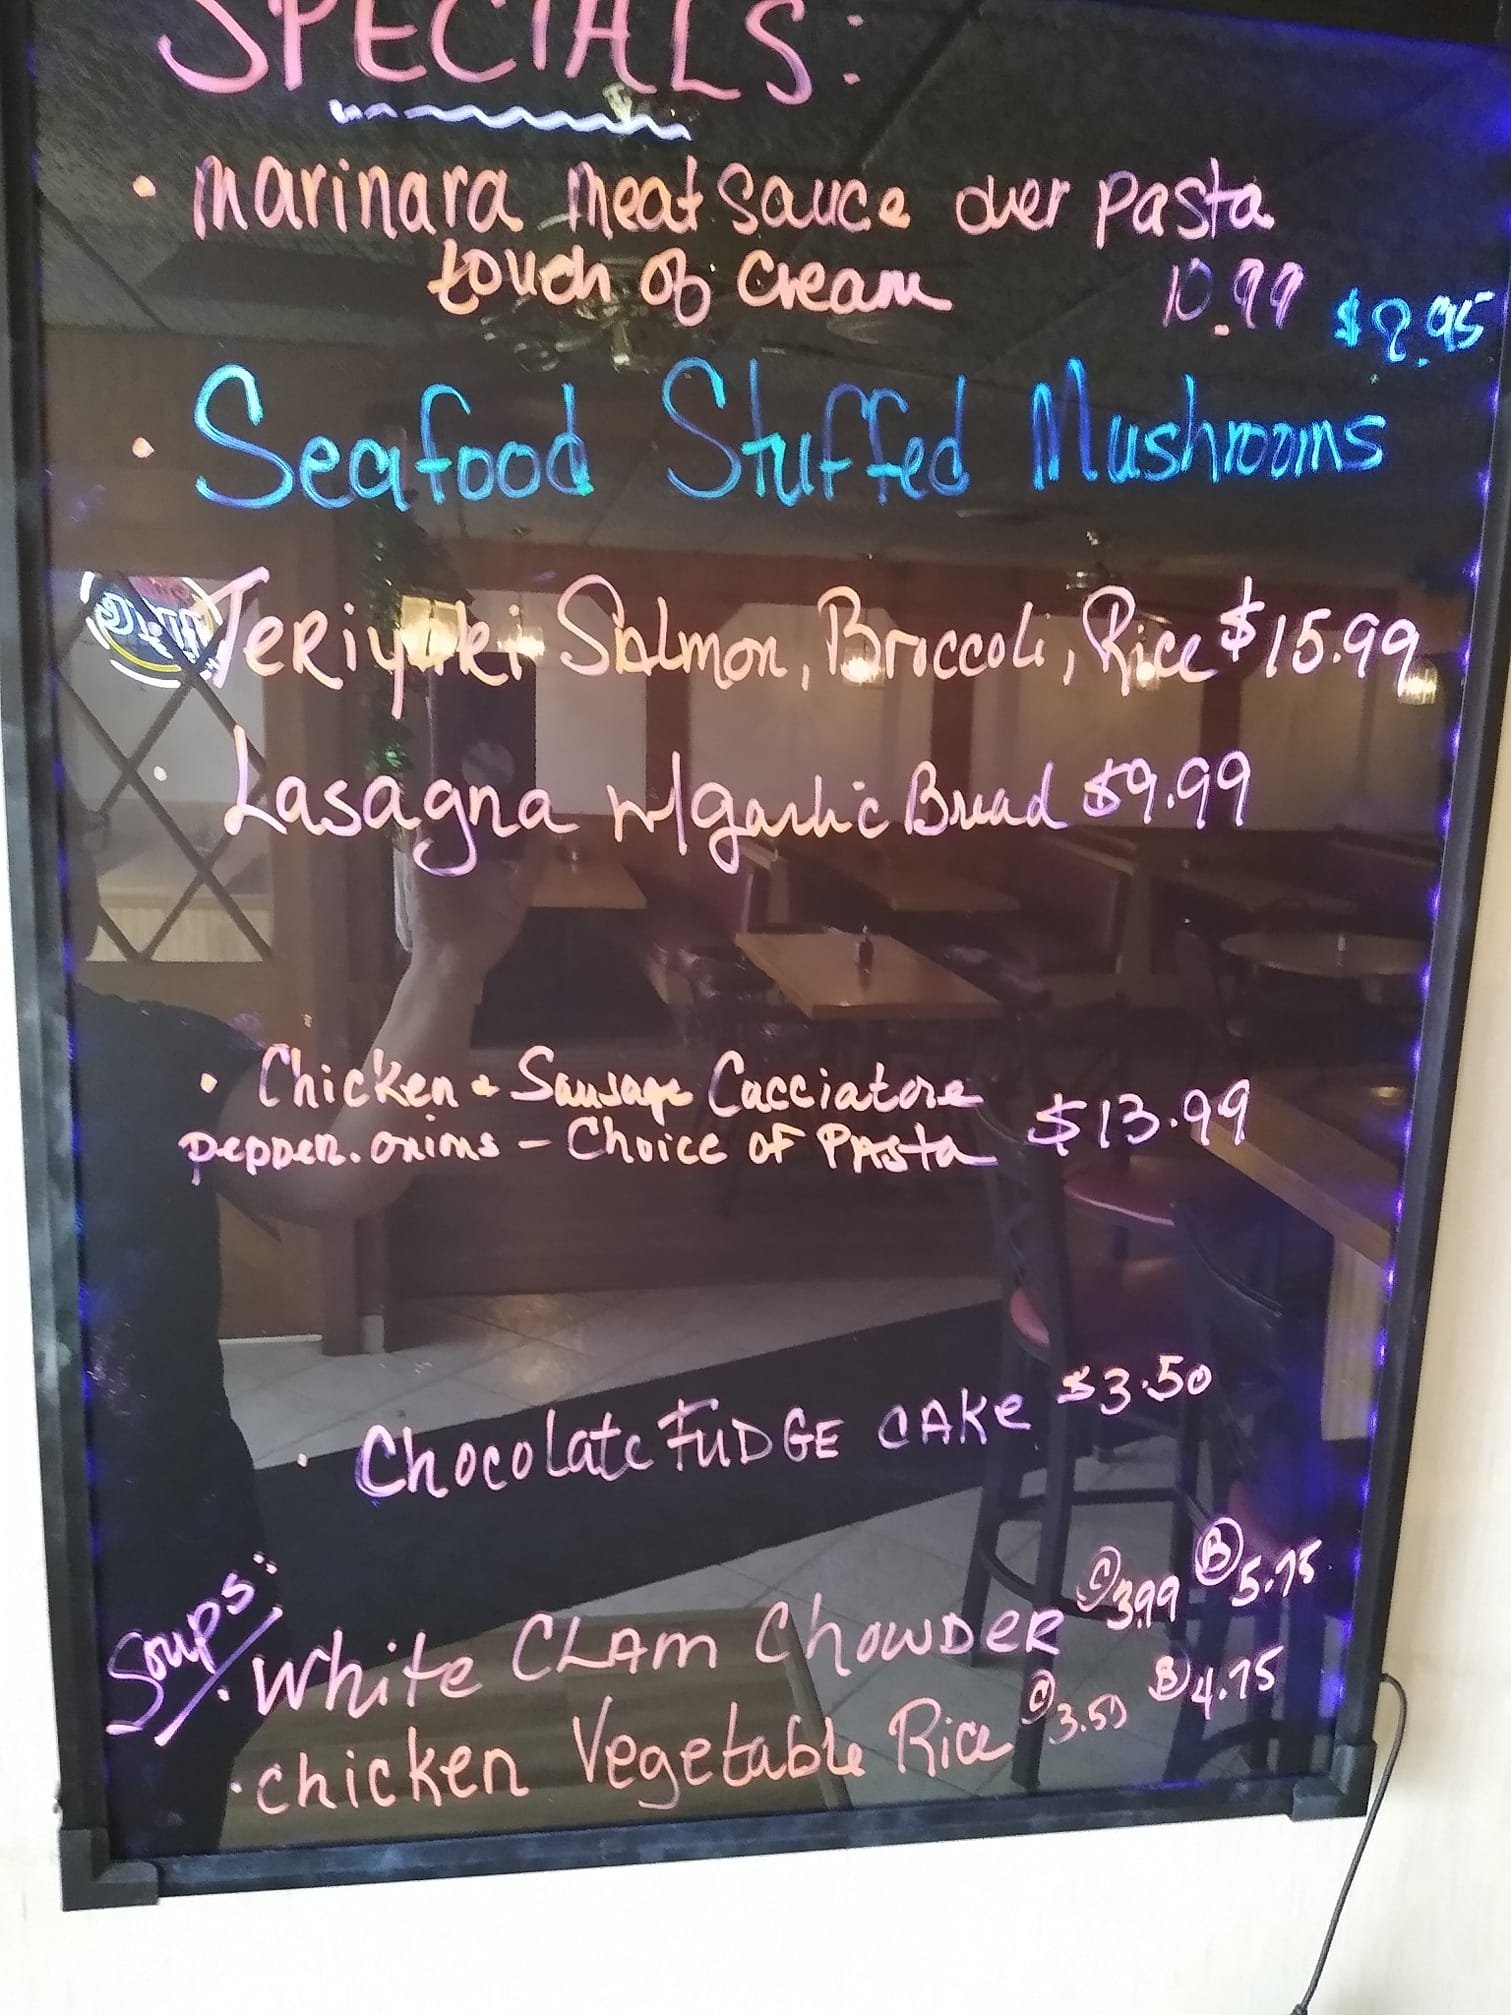 SPECIALS:
• Marinara Meat Sauce over Pasta
touch of Cream 10.99
• Seafood Stuffed Mushrooms
Teriyaki Salmon, Broccoli, Rice $15.99
• Lasagna w/garlic Bread $9.99
• Chicken & Sausage Cacciatore
pepper. onions – Choice OF PAsta $13.99
• Chocolate FUDGE CAKe $3.50
Soups:
• White CLAM ChOWDER C 3.99 B 5.75
• chicken Vegetable Rice C 3.50 B 4.75